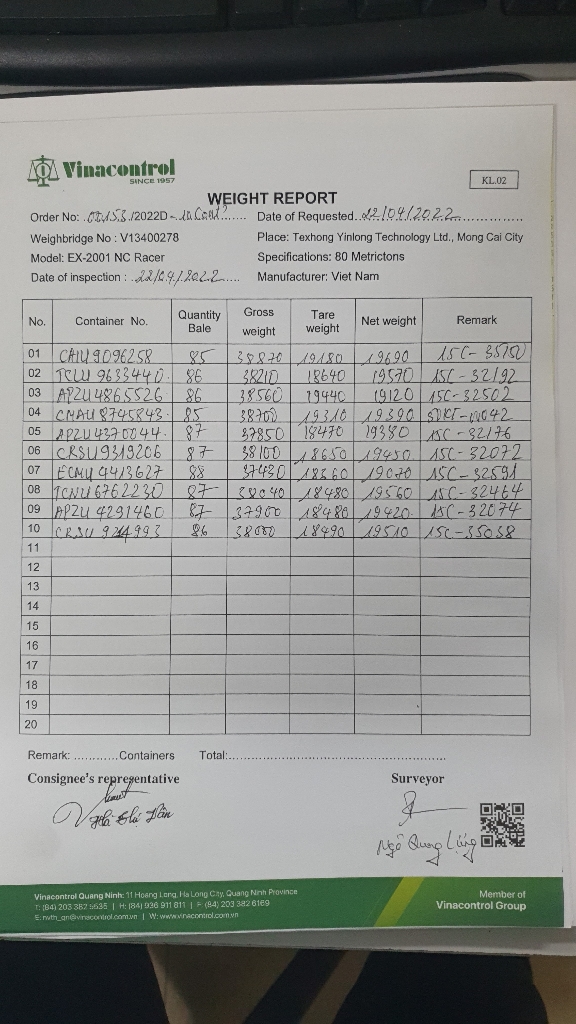 Vinacontrol
SINCE 1957
KL.02
WEIGHT REPORT
Order No: 00153/2022D- Date of Requested 22/04/2022
Weighbridge No : V13400278 Place: Texhong Yinlong Technology Ltd., Mong Cai City
Model: EX-2001 NC Racer Specifications: 80 Metrictons
Date of inspection : 22/04/2022 Manufacturer: Viet Nam
No. Container No. Quantity Bale Gross weight Tare weight Net weight Remark
01 CAIU9096258 85 38870 19180 19690 15C-35150
02 TCLU9633440 86 38210 18640 19570 15C-32192
03 APZU4865526 86 38560 19440 19120 15C-32502
04 CMAU8745843 85 38700 19310 19390
05 APZU4370044 87 37850 18470 19380 15C-32176
06 CRSU9319206 87 38100 18650 19450 15C-32072
07 ECMU4413627 88 37430 18360 19070 15C-32591
08 TCNU6762230 87 38040 18480 19560 15C-32464
09 APZU4291460 87 37900 18480 19420 15C-32074
10 CRSU 86 38000 18490 19510 15C-35038
11
12
13
14
15
16
17
18
19
20
Remark: ............Containers Total:..........................................................
Consignee's representative Surveyor
Ngô Quang
Vinacontrol Quang Ninh: 11 Hoang Long, Ha Long City, Quang Ninh Province
T: (84) 203 382 5635 | H: (84) 936 911 811 | F: (84) 203 382 6169
E: nvth_qn@vinacontrol.com.vn | W: www.vinacontrol.com.vn
Member of
Vinacontrol Group